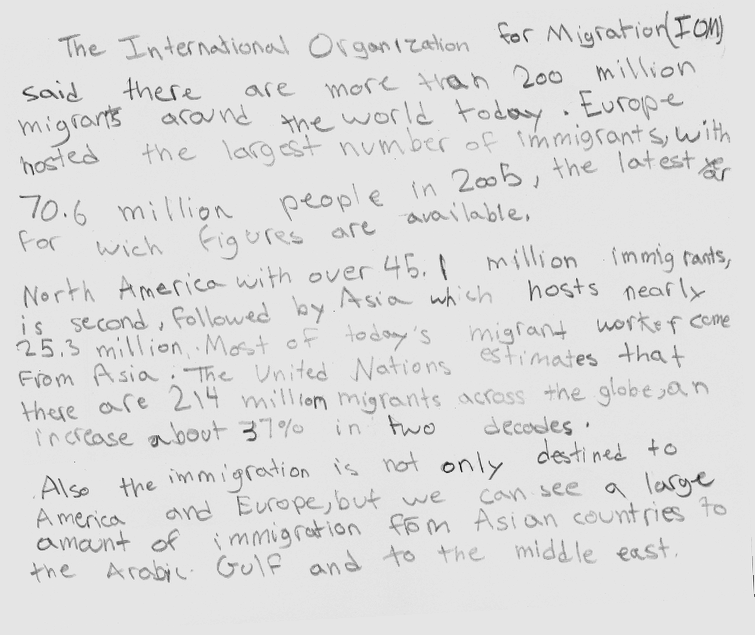 The International Organization for Migration (IOM)
said there are more than 200 million
migrants around the world today. Europe
hosted the largest number of immigrants, with
70.6 million people in 2005, the latest year
for wich figures are available.
North America with over 45.1 million immigrants,
is second, followed by Asia which hosts nearly
25.3 million. Most of today's migrant worker come
From Asia. The United Nations estimates that
there are 214 million migrants across the globe, an
increase about 37% in two decades.
Also the immigration is not only destined to
America and Europe, but we can see a large
amount of immigration from Asian countries to
the Arabic Gulf and to the middle east.